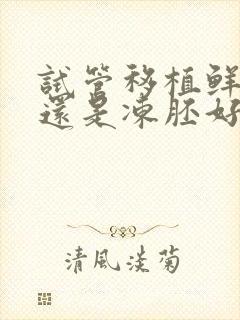 試管移植鮮
還是凍胚好
清風淡菊